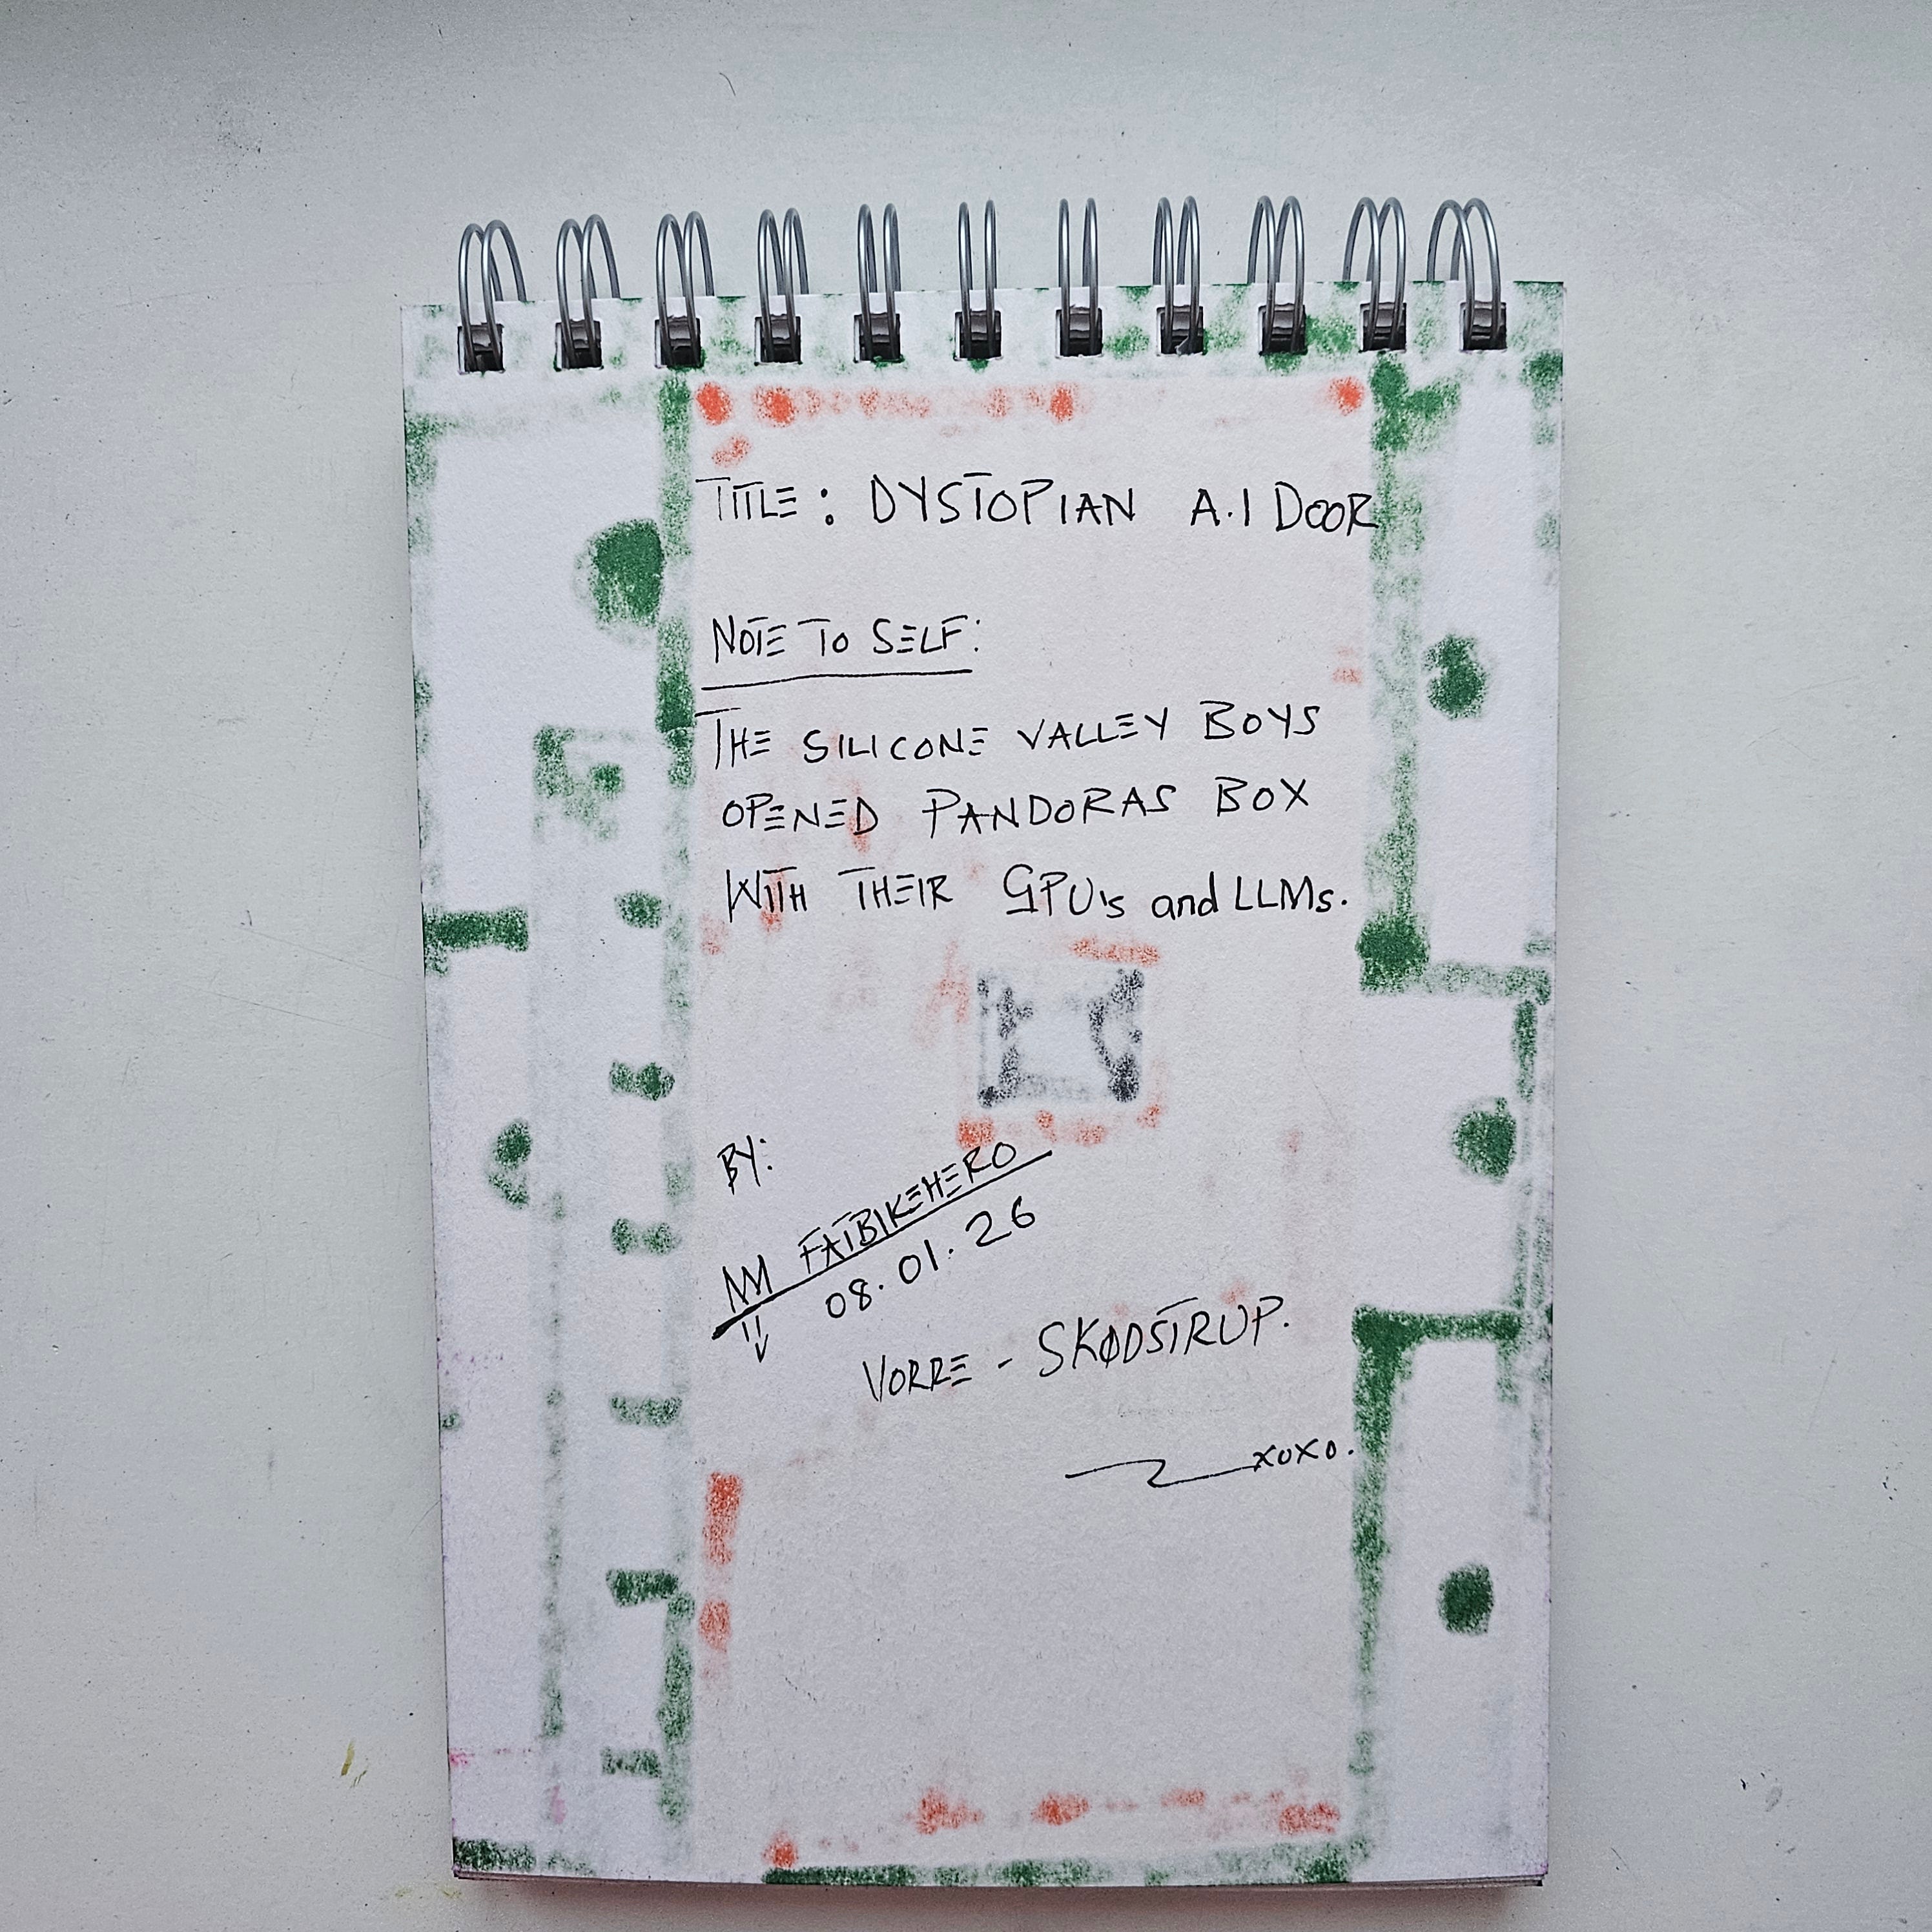 TITLE: DYSTOPIAN A.I DOOR
NOTE TO SELF:
THE SILICONE VALLEY BOYS
OPENED PANDORAS BOX
WITH THEIR GPU's and LLMs.
BY:
FATBIKEHERO
08.01.26
VORRE - SKØDSTRUP.
xoxo.